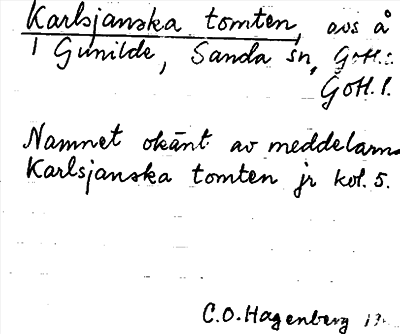 Karlsjanska tomten, avs å
1 Gunilde, Sanda sn, Gotl.:
Gotl. l.
Namnet okänt av meddelarna
Karlsjanska tomten jr kol. 5.
C.O. Hagenberg